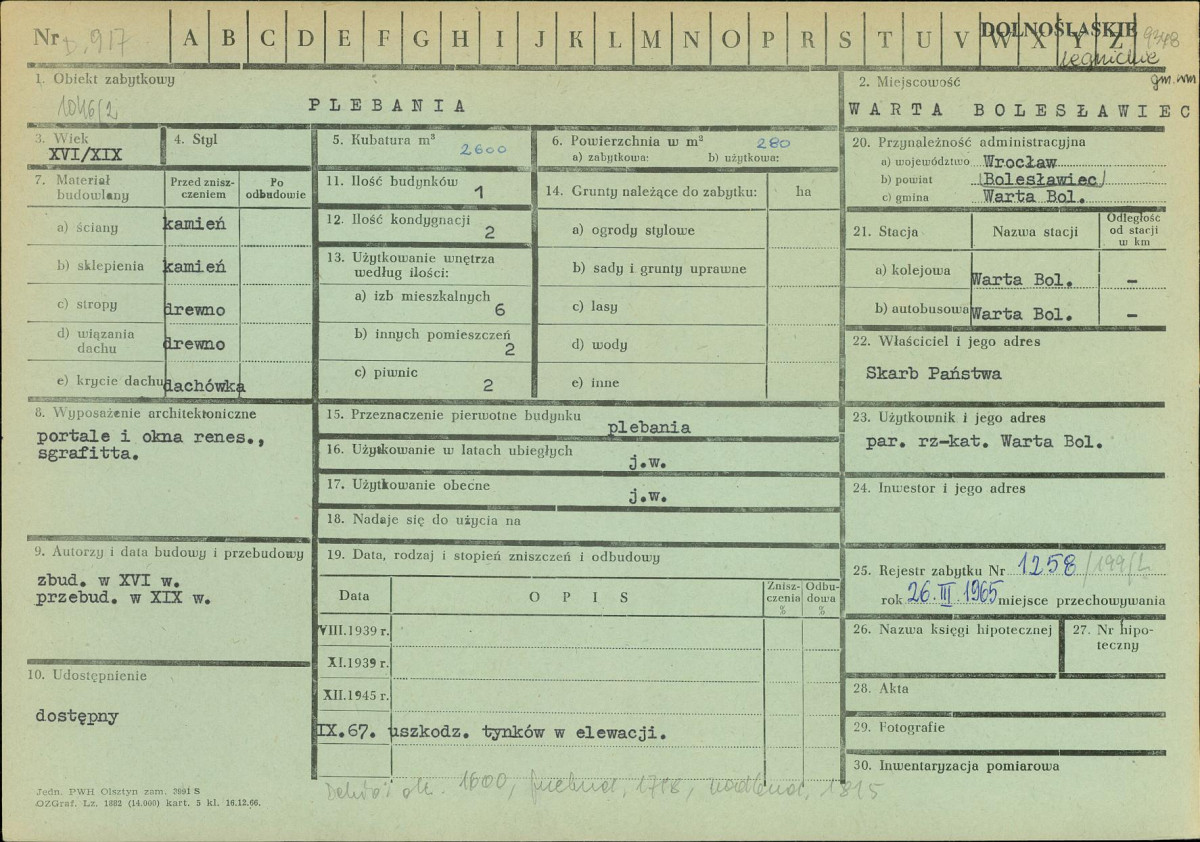 Nr D, 917 A B C D E F G H I J K L M N O P R S T U V W X Y Z DOLNOŚLĄSKIE
legnickie
gm. wm
1. Obiekt zabytkowy
1046/2
PLEBANIA
2. Miejscowość
WARTA BOLESŁAWIEC
3. Wiek
XVI/XIX
4. Styl
5. Kubatura m³
2600
6. Powierzchnia w m²
280
a) zabytkowa: b) użytkowa:
7. Materiał budowlany
Przed zniszczeniem
Po odbudowie
a) ściany kamień
b) sklepienia kamień
c) stropy drewno
d) wiązania dachu drewno
e) krycie dachu dachówka
8. Wyposażenie architektoniczne
portale i okna renes.,
sgrafitta.
9. Autorzy i data budowy i przebudowy
zbud. w XVI w.
przebud. w XIX w.
10. Udostępnienie
dostępny
11. Ilość budynków
1
12. Ilość kondygnacji
2
13. Użytkowanie wnętrza
według ilości:
a) izb mieszkalnych
6
b) innych pomieszczeń
2
c) piwnic
2
14. Grunty należące do zabytku: ha
a) ogrody stylowe
b) sady i grunty uprawne
c) lasy
d) wody
e) inne
15. Przeznaczenie pierwotne budynku
plebania
16. Użytkowanie w latach ubiegłych
j.w.
17. Użytkowanie obecne
j.w.
18. Nadaje się do użycia na
19. Data, rodzaj i stopień zniszczeń i odbudowy
Data OPIS Zniszczenia % Odbudowa %
VIII.1939 r.
XI.1939 r.
XII.1945 r.
IX.67. uszkodz. tynków w elewacji.
ok. 1600, 1815
20. Przynależność administracyjna
a) województwo Wrocław
b) powiat /Bolesławiec/
c) gmina Warta Bol.
21. Stacja Nazwa stacji Odległość od stacji w km
a) kolejowa Warta Bol. -
b) autobusowa Warta Bol. -
22. Właściciel i jego adres
Skarb Państwa
23. Użytkownik i jego adres
par. rz-kat. Warta Bol.
24. Inwestor i jego adres
25. Rejestr zabytku Nr 1258/199/L
rok 26.III.1965 miejsce przechowywania
26. Nazwa księgi hipotecznej
27. Nr hipoteczny
28. Akta
29. Fotografie
30. Inwentaryzacja pomiarowa
Jedn. PWH Olsztyn zam. 3991 S
OZGraf. Lz. 1882 (14.000) kart. 5 kl. 16.12.66.